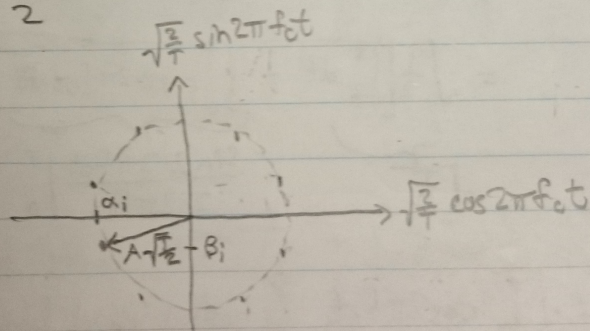 2
√(2/T) sin2πf_ct
αi
√(2/T) cos2πf_ct
A√(T/2) - βi